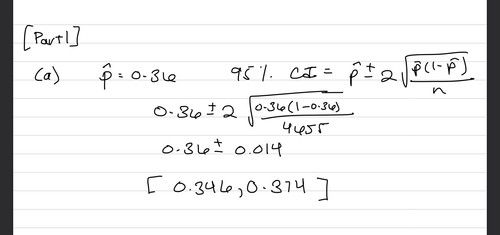 [Part1]
(a) p̂ = 0.36 95%. CI = p̂ ± 2 √(p̂(1-p̂)/n)
0.36 ± 2 √(0.36(1-0.36)/4655)
0.36 ± 0.014
[0.346, 0.374]